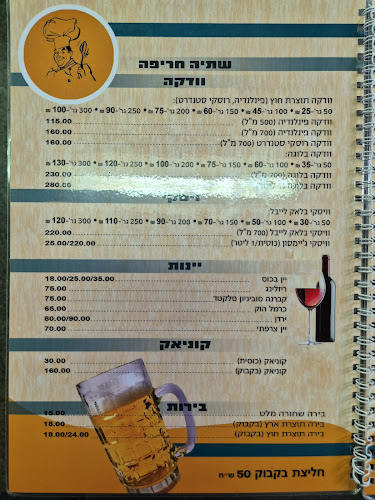 שתיה חריפה
וודקה
וודקה תוצרת חוץ (פינלנדיה, רוסקי סטנדרט):
50 גר'-25 ₪ • 100 גר'-45 ₪ • 150 גר'-60 ₪ • 200 גר'-75 ₪ • 250 גר'-90 ₪ • 300 גר'-100 ₪
וודקה פינלנדיה (500 מ"ל) 115.00
וודקה פינלנדיה (700 מ"ל) 160.00
וודקה רוסקי סטנדרט (700 מ"ל) 160.00
וודקה בלוגה:
50 גר'-35 ₪ • 100 גר'-60 ₪ • 150 גר'-75 ₪ • 200 גר'-100 ₪ • 250 גר'-120 ₪ • 300 גר'-130 ₪
וודקה בלוגה 230.00
וודקה 280.00
וויסקי בלאק לייבל:
50 גר'-30 ₪ • 100 גר'-50 ₪ • 150 גר'-70 ₪ • 200 גר'-90 ₪ • 250 גר'-110 ₪ • 300 גר'-120 ₪
וויסקי בלאק לייבל (700 מ"ל) 220.00
וויסקי ג'יימסון (כוסית/1 ליטר) 25.00/220.00
יינות
יין בכוס 18.00/25.00/35.00
ריזלינג 75.00
קברנה סוביניון סלקטד 75.00
כרמל הוק 65.00
ירדן 80.00/90.00
יין צרפתי 70.00
קוניאק
קוניאק (כוסית) 30.00
קוניאק (בקבוק) 160.00
בירות
בירה שחורה מלט 15.00
בירה תוצרת ארץ (בקבוק) 18.00
בירה תוצרת חוץ (בקבוק) 18.00/24.00
חליצת בקבוק 50 ש"ח